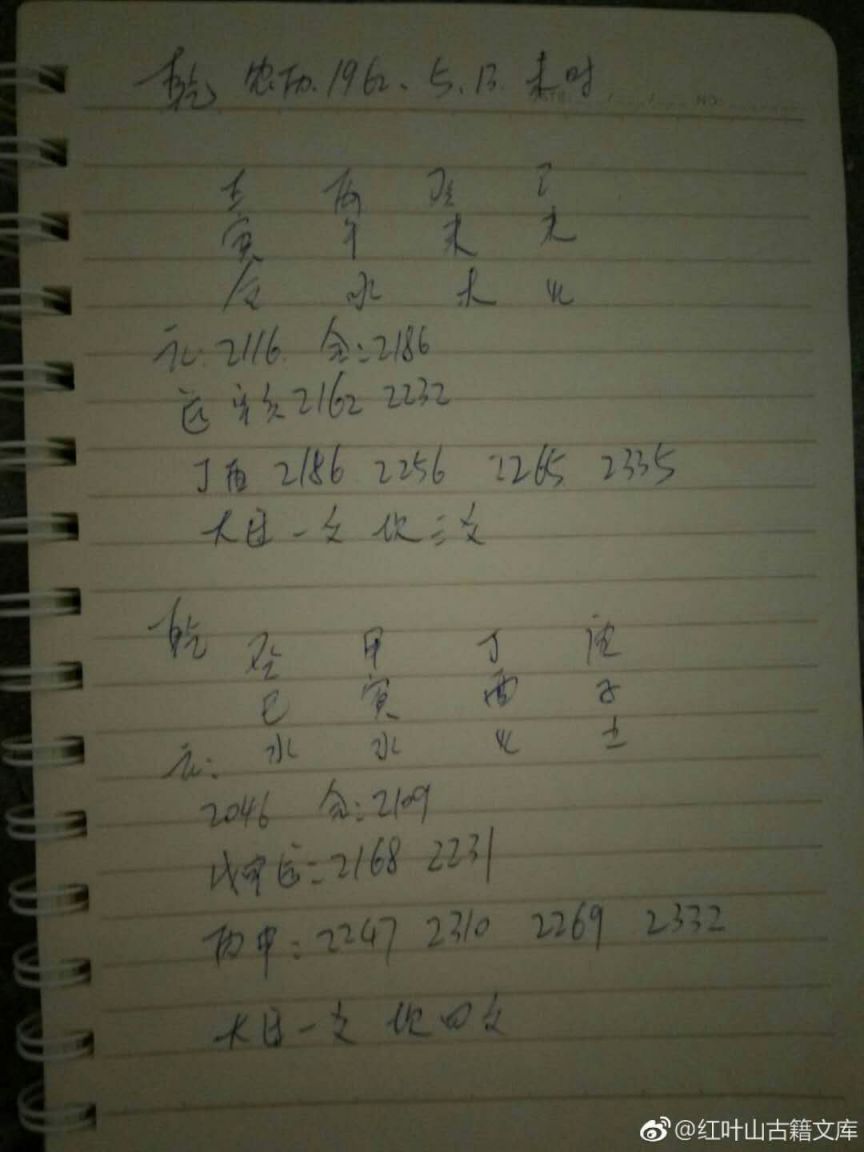 乾 农历.1962.5.13.未时
壬 丙 癸 己
寅 午 未 未
金 水 木 火
元:2116. 会:2186
运 辛亥 2162 2232
丁酉 2186 2256 2265 2335
大运一文 次三文
乾 癸 甲 丁 庚
巳 寅 酉 子
元: 水 水 火 土
2046 会:2109
戊申运:2168 2231
丙申:2247 2310 2269 2332
大运一文 次四文
@红叶山古籍文库